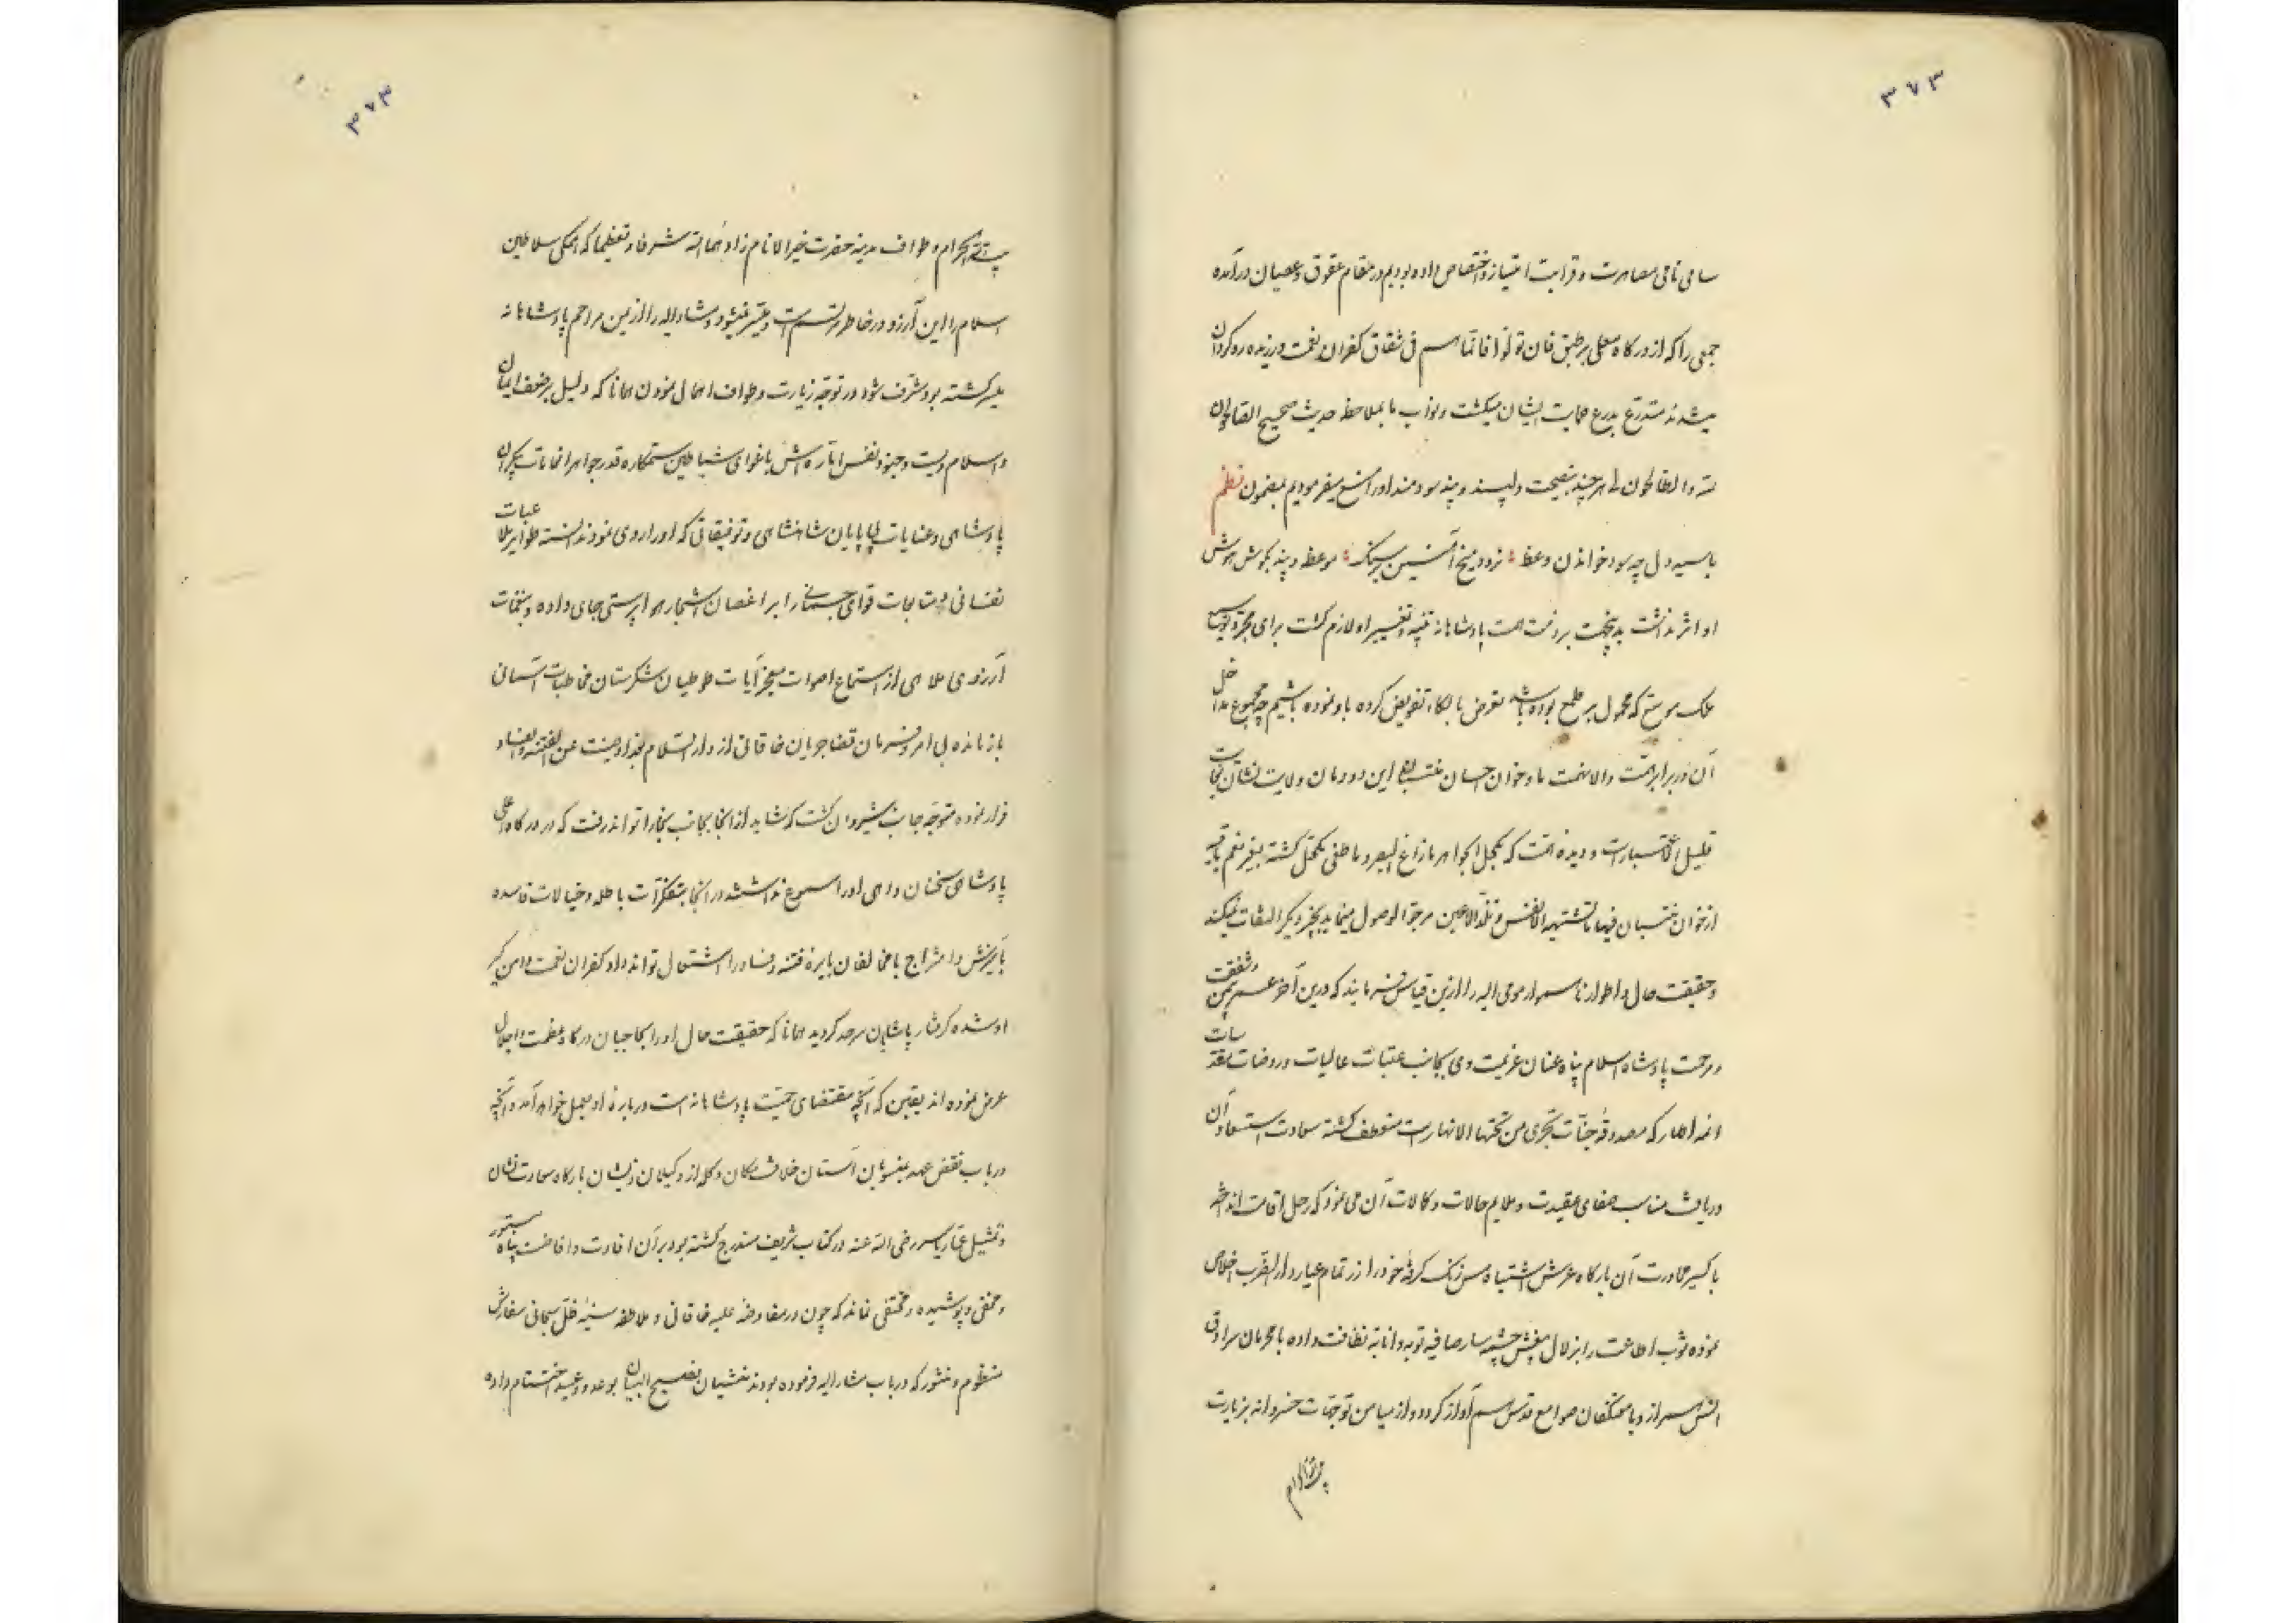 ۳۷۳
سامی نامی مصاهرت و قرابت امتیاز و اختصاص داده بودیم در مقام عقوق و عصیان درآمده
جمعی را که از درگاه معلی بر طبق فان تولوا فانما هم فی شقاق کفران نعمت ورزیده روکردان
میشدند متدرع بدرع حمایت ایشان میکشت و نواب ما بملاحظه حدیث صحیح الصالحون
لله و الطالحون لی هر چند بنصیحت دلپسند و پند سودمند او را منع میفرمودیم بمضمون نظم
با سیه دل چه سود خواندن وعظ نرود میخ آهنین بر سنک موعظه و پند بکوش هوش
او اثر نداشت بدینجهت بر ذمت همت پادشاهانه تنبیه و تغییر او لازم کشت برای مجرد توسیع
ملک موسع که محمول بر طمع بوده باشد تعرض بالکاء تفویض کرده باو نموده باشیم چه مجموع مداخل
آن در برابر همت والا نهمت ما و خوان احسان منتسبان این دودمان ولایت نشان نجابت
قلیل الاعتبارات و دیده همت که بکحل الجواهر مازاغ البصر و ماطغی مکحل کشته بغیر نعم باقیه
از خوان منتسبان فیها ما تشتهیه الانفس و تلذ الاعین مرجوا الوصول مینماید بچیز دیکر التفات نمیکند
و حقیقت حال و اطوار ناهموار مومی الیه را ازین قیاس فرمایند که درین آخر عمر بیمن و شفقت
و مرحمت پادشاه اسلام پناه عنان عزیمت وی بجانب عتبات عالیات و روضات مقدسات
ائمه اطهار که مصدوقه جنات تجری من تحتها الانهار است منعطف کشته سعادت استسعاد آن
دریافت مناسب صفای عقیدت و ملایم حالات و کمالات آن می نمود که رحل اقامت انداخته
باکسیر مجاورت آن بارکاه عرش اشتباه مس زنک کرفته خود را زر تمام عیار دار الضرب اخلاص
نموده ثوب اطاعت را بزلال چشمه سار صافیه توبه و انابه نظافت داده با محرمان سرادق
انس همراز و با معتکفان صوامع قدس هم آواز کردد و از میامن توجهات خسروانه بزیارت
بیت الله الحرام
۳۷۳
بیت الله الحرام و طواف مدینه حضرت خیر الانام زادهما الله شرفا و تعظیما که همکی سلاطین
اسلام را این آرزو در خاطر مرتسم است و میسر نمیشود و مشار الیه را ازین مراحم پادشاهانه
میسر کشته بود مشرف شود در توجه زیارت و طواف اهمال نمودن همانا که دلیل بر ضعف ایمان
و اسلام ویست و نفس اماره اش باغوای شیاطین ستمکاره قدر جواهر انعامات بیکران
پادشاهی و عنایات بی پایان شاهنشاهی و توفیقاتی که او را روی نمود ندانسته
نفسانی و متابعات قوای جسمانی را بر اغصان اشجار هواپرستی جای داده و بنغمات
آرزوی ملاهی از استماع اصوات معجز آیات طوطیان شکرستان مخاطبات آسمانی
باز مانده بی امر و فرمان قضا جریان خاقانی از دار السلام بغداد صینت عن الفتنة و الفساد
فرار نموده متوجه جانب شیروان کشت که شاید از آنجا بجانب بخارا تواند رفت که در درکاه معلی
پادشاهی سخنان واهی او را مسموع نداشتند در آنجا بتفکرات باطله و خیالات فاسده
بآمیزش و امتزاج با مخالفان نایره فتنه و فساد را اشتعال تواند داد کفران نعمت دامن کیر
او شده کرفتار پاشایان سرحد کردید همانا که حقیقت حال او را بحاجبان درکاه عظمت و اجلال
عرض نموده اند یقین که آنچه مقتضای حمیت پادشاهانه است درباره او بعمل خواهد آمد و آنچه
در باب نقض عهد منسوبان آستان خلافت مکان و کله از وکیلان ذیشان بارکاه سعادت نشان
و تمثیل عمار یاسر رضی الله عنه در کتاب شریف مندرج کشته بود بر آن افادت و افاضت پناه مستور
و مخفی و پوشیده و مختفی نماند که چون در مفاوضه علیه خاقانی و ملاطفه سنیه ظل سبحانی سفارش
منظوم و منثور که در باب مشار الیه فرموده بودند منشیان فصیح البیان بوعد و وعید اختتام داده